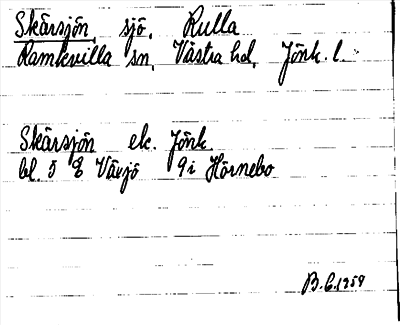 Skärsjön, sjö, Rulla
Ramkvilla sn, Västra hd, Jönk. l.
Skärsjön ek. Jönk
bl. 5 E Växjö 9i Hörnebo
B.G. 1959